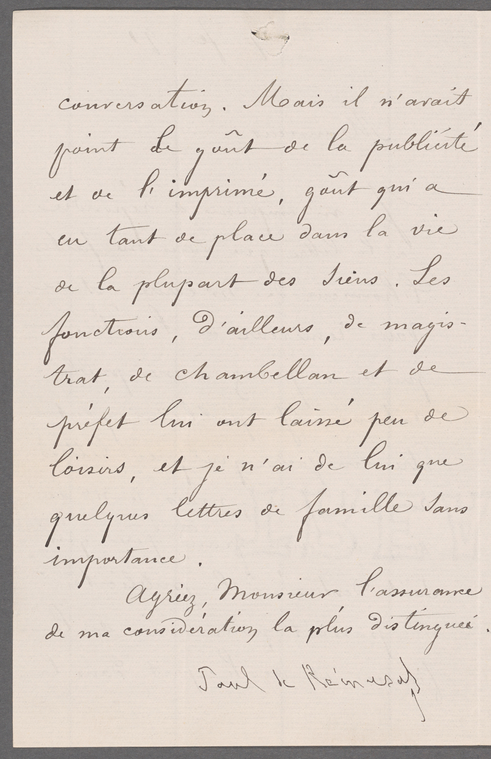 conversation. Mais il n'avait
point le goût de la publicité
et de l'imprimé, goût qui a
eu tant de place dans la vie
de la plupart des siens. Ses
fonctions, d'ailleurs, de magis-
trat, de chambellan et de
préfet lui ont laissé peu de
loisirs, et je n'ai de lui que
quelques lettres de famille sans
importance.
Agréez, Monsieur l'assurance
de ma considération la plus distinguée.
Paul de Rémusat